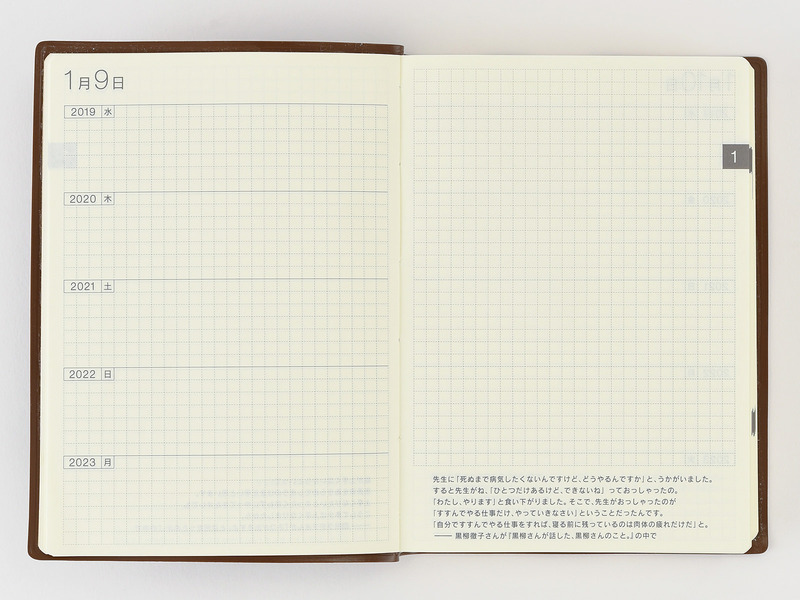 1月9日
2019 水
2020 木
2021 土
2022 日
2023 月
1
先生に「死ぬまで病気したくないんですけど、どうやるんですか」と、うかがいました。
すると先生がね、「ひとつだけあるけど、できないね」っておっしゃったの。
「わたし、やります」と食い下がりました。そこで、先生がおっしゃったのが
「すすんでやる仕事だけ、やっていきなさい」ということだったんです。
「自分ですすんでやる仕事をすれば、寝る前に残っているのは肉体の疲れだけだ」と。
—— 黒柳徹子さんが『黒柳さんが話した、黒柳さんのこと。』の中で